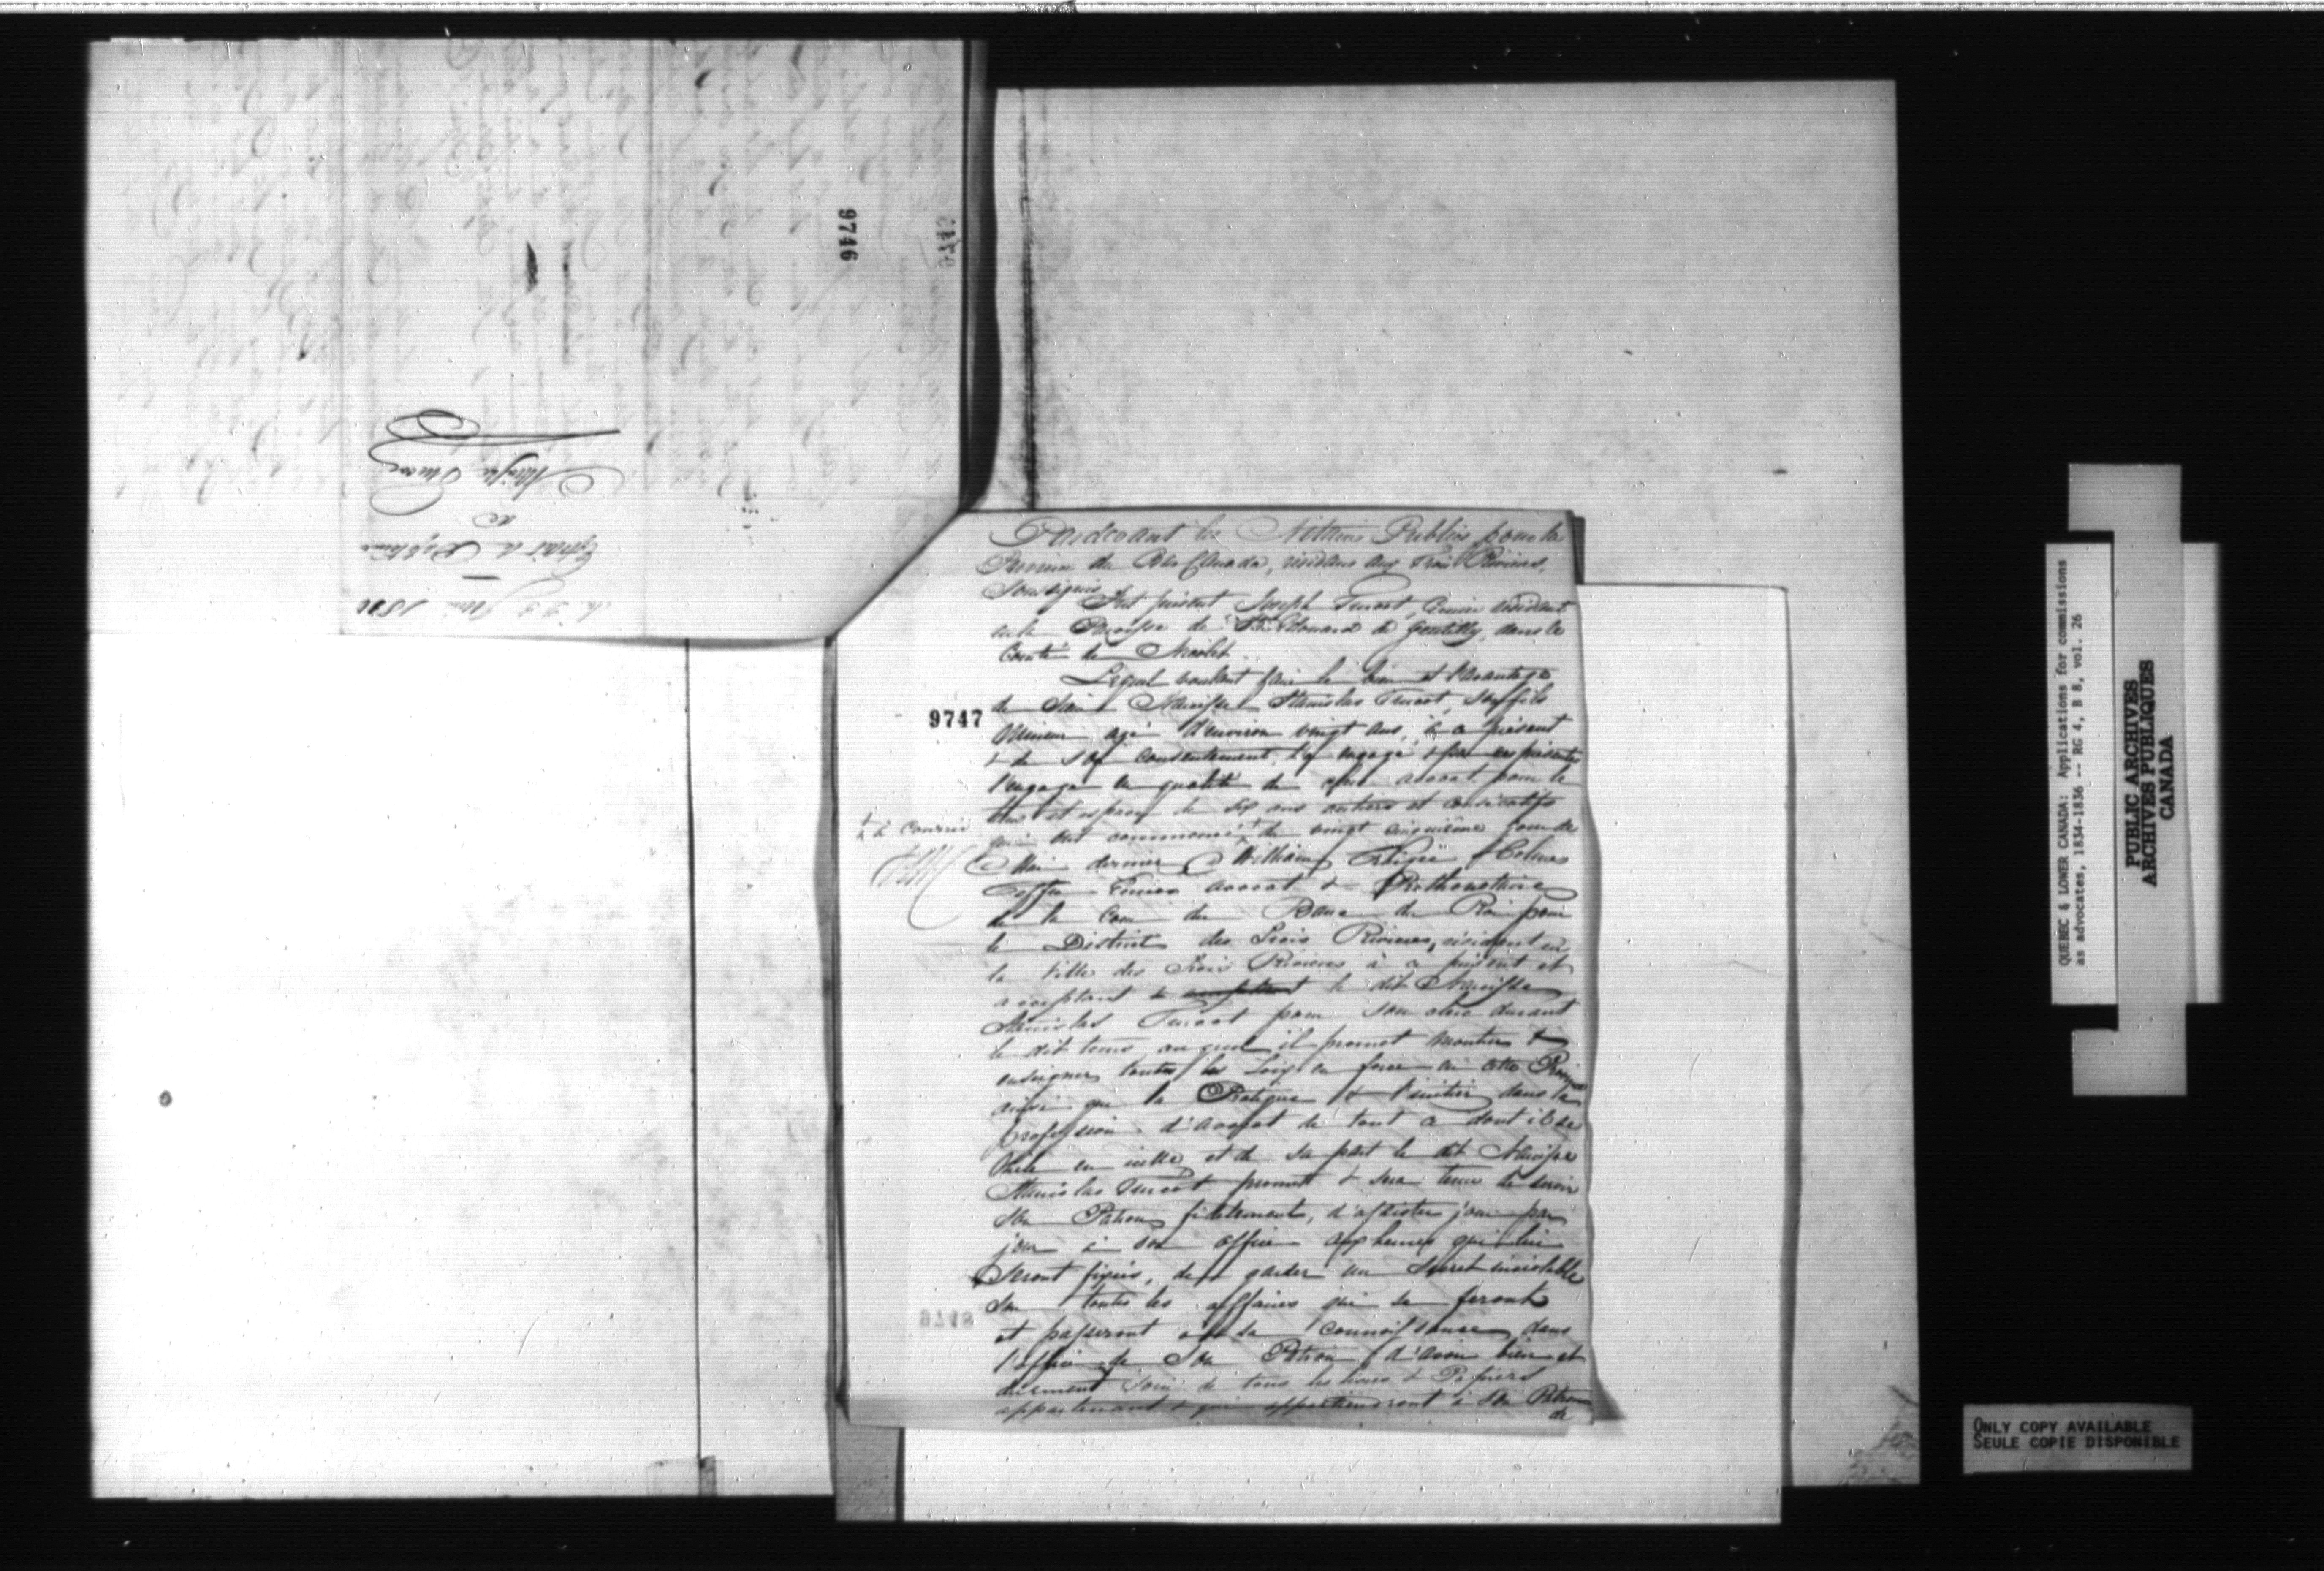 9746
le 23 1810
Extrait de Baptême
de
Turcot
9747
Pardevant les Notaires Publics pour la
Province du Bas Canada, résidans aux Trois Rivieres,
Soussignés
Fut présent Joseph Turcot, Ecuier résidant
en la Paroisse de St. Edouard de Gentilly, dans le
Comté de Nicolet
Lequel voulant faire le bien et l'avantage
de Sieur Narcisse Stanislas Turcot, son fils
Mineur agé d'environ vingt ans, à ce présent
& de son consentement, l'a engagé & par ces présentes
l'engage en qualité de clerc avocat pour le
tems et espace de six ans entiers et consécutifs
qui ont commencé le vingt cinquième jour de
+ à courir
Mai dernier à William Holmes
Ecuier avocat & Prothonotaire
de la Cour du Banc du Roi pour
le District des Trois Rivieres, résidant en
la Ville des Trois Rivieres à ce présent et
acceptant & le dit Narcisse
Stanislas Turcot pour son clerc durant
le dit tems auquel il promet montrer &
enseigner toutes les Loix en force en cette Province
ainsi que la Pratique & l'initier dans la
profession d'avocat de tout ce dont il se
mêle en icelle, et de sa part le dit Narcisse
Stanislas Turcot promet & sera tenu de servir
son Patron fidelement, d'assister jour par
jour à son office aux heures qui lui
Seront fixées, de garder un Secret inviolable
Sur toutes les affaires qui se feront
et passeront à sa connoissance dans
l'office de Son Patron, d'avoir bien et
duement soin de tous les livres & Papiers
appartenant & qui appartiendront à Son Patron
de
9748
QUEBEC & LOWER CANADA: Applications for commissions
as advocates, 1834-1836 -- RG 4, B 8, vol. 26
PUBLIC ARCHIVES
ARCHIVES PUBLIQUES
CANADA
ONLY COPY AVAILABLE
SEULE COPIE DISPONIBLE